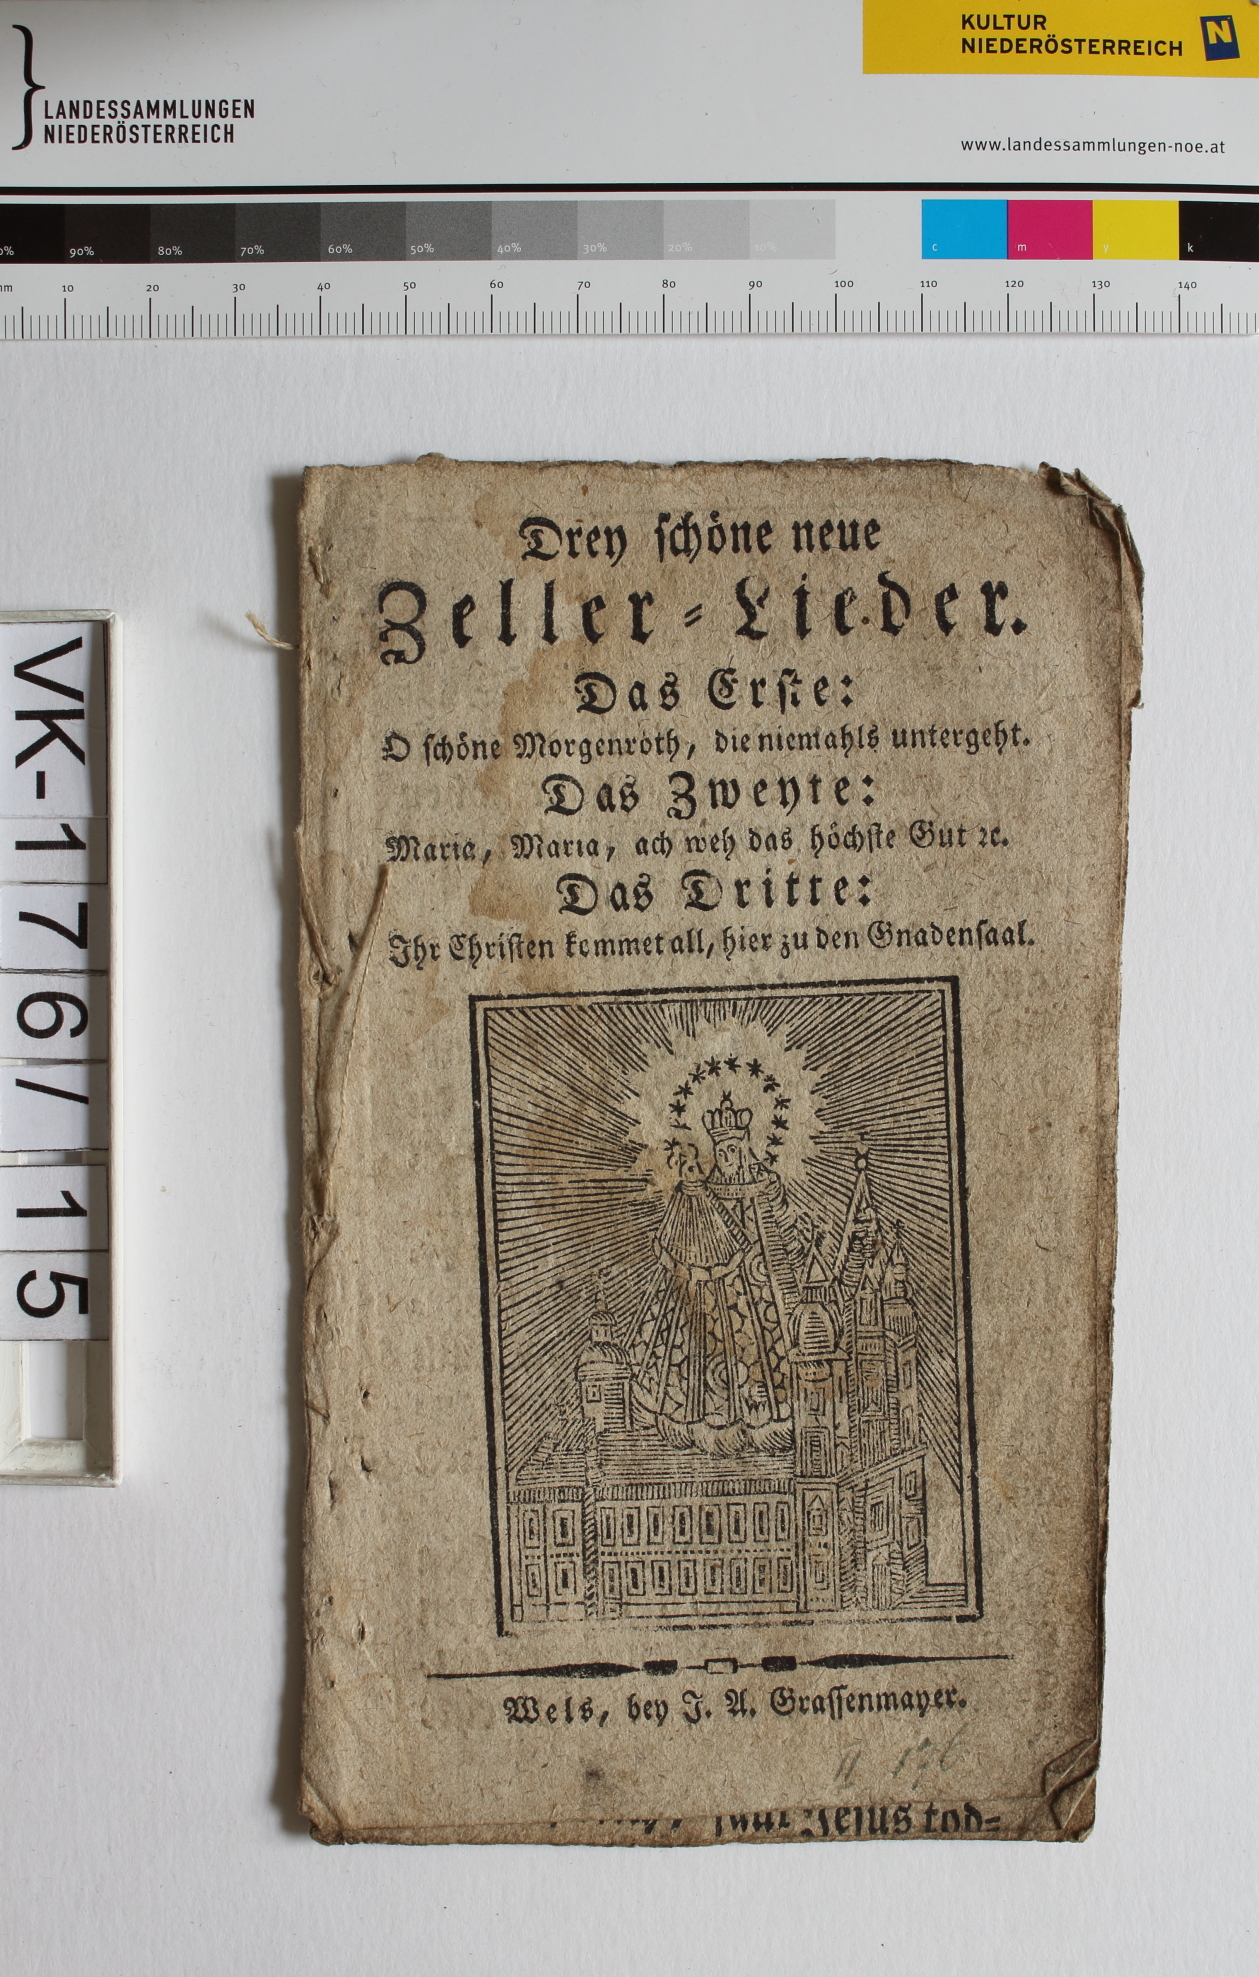 LANDESSAMMLUNGEN
NIEDERÖSTERREICH
KULTUR
NIEDERÖSTERREICH
N
www.landessammlungen-noe.at
0% 90% 80% 70% 60% 50% 40% 30% 20% 10% c m y k
mm 10 20 30 40 50 60 70 80 90 100 110 120 130 140
VK-176/15
Drey schöne neue
Zeller-Lieder.
Das Erste:
O schöne Morgenröth, die niemahls untergeht.
Das Zweyte:
Maria, Maria, ach weh das höchste Gut ꝛc.
Das Dritte:
Ihr Christen kommet all, hier zu den Gnadensaal.
Wels, bey J. A. Grassenmayer.
II 176
Jesus tod=